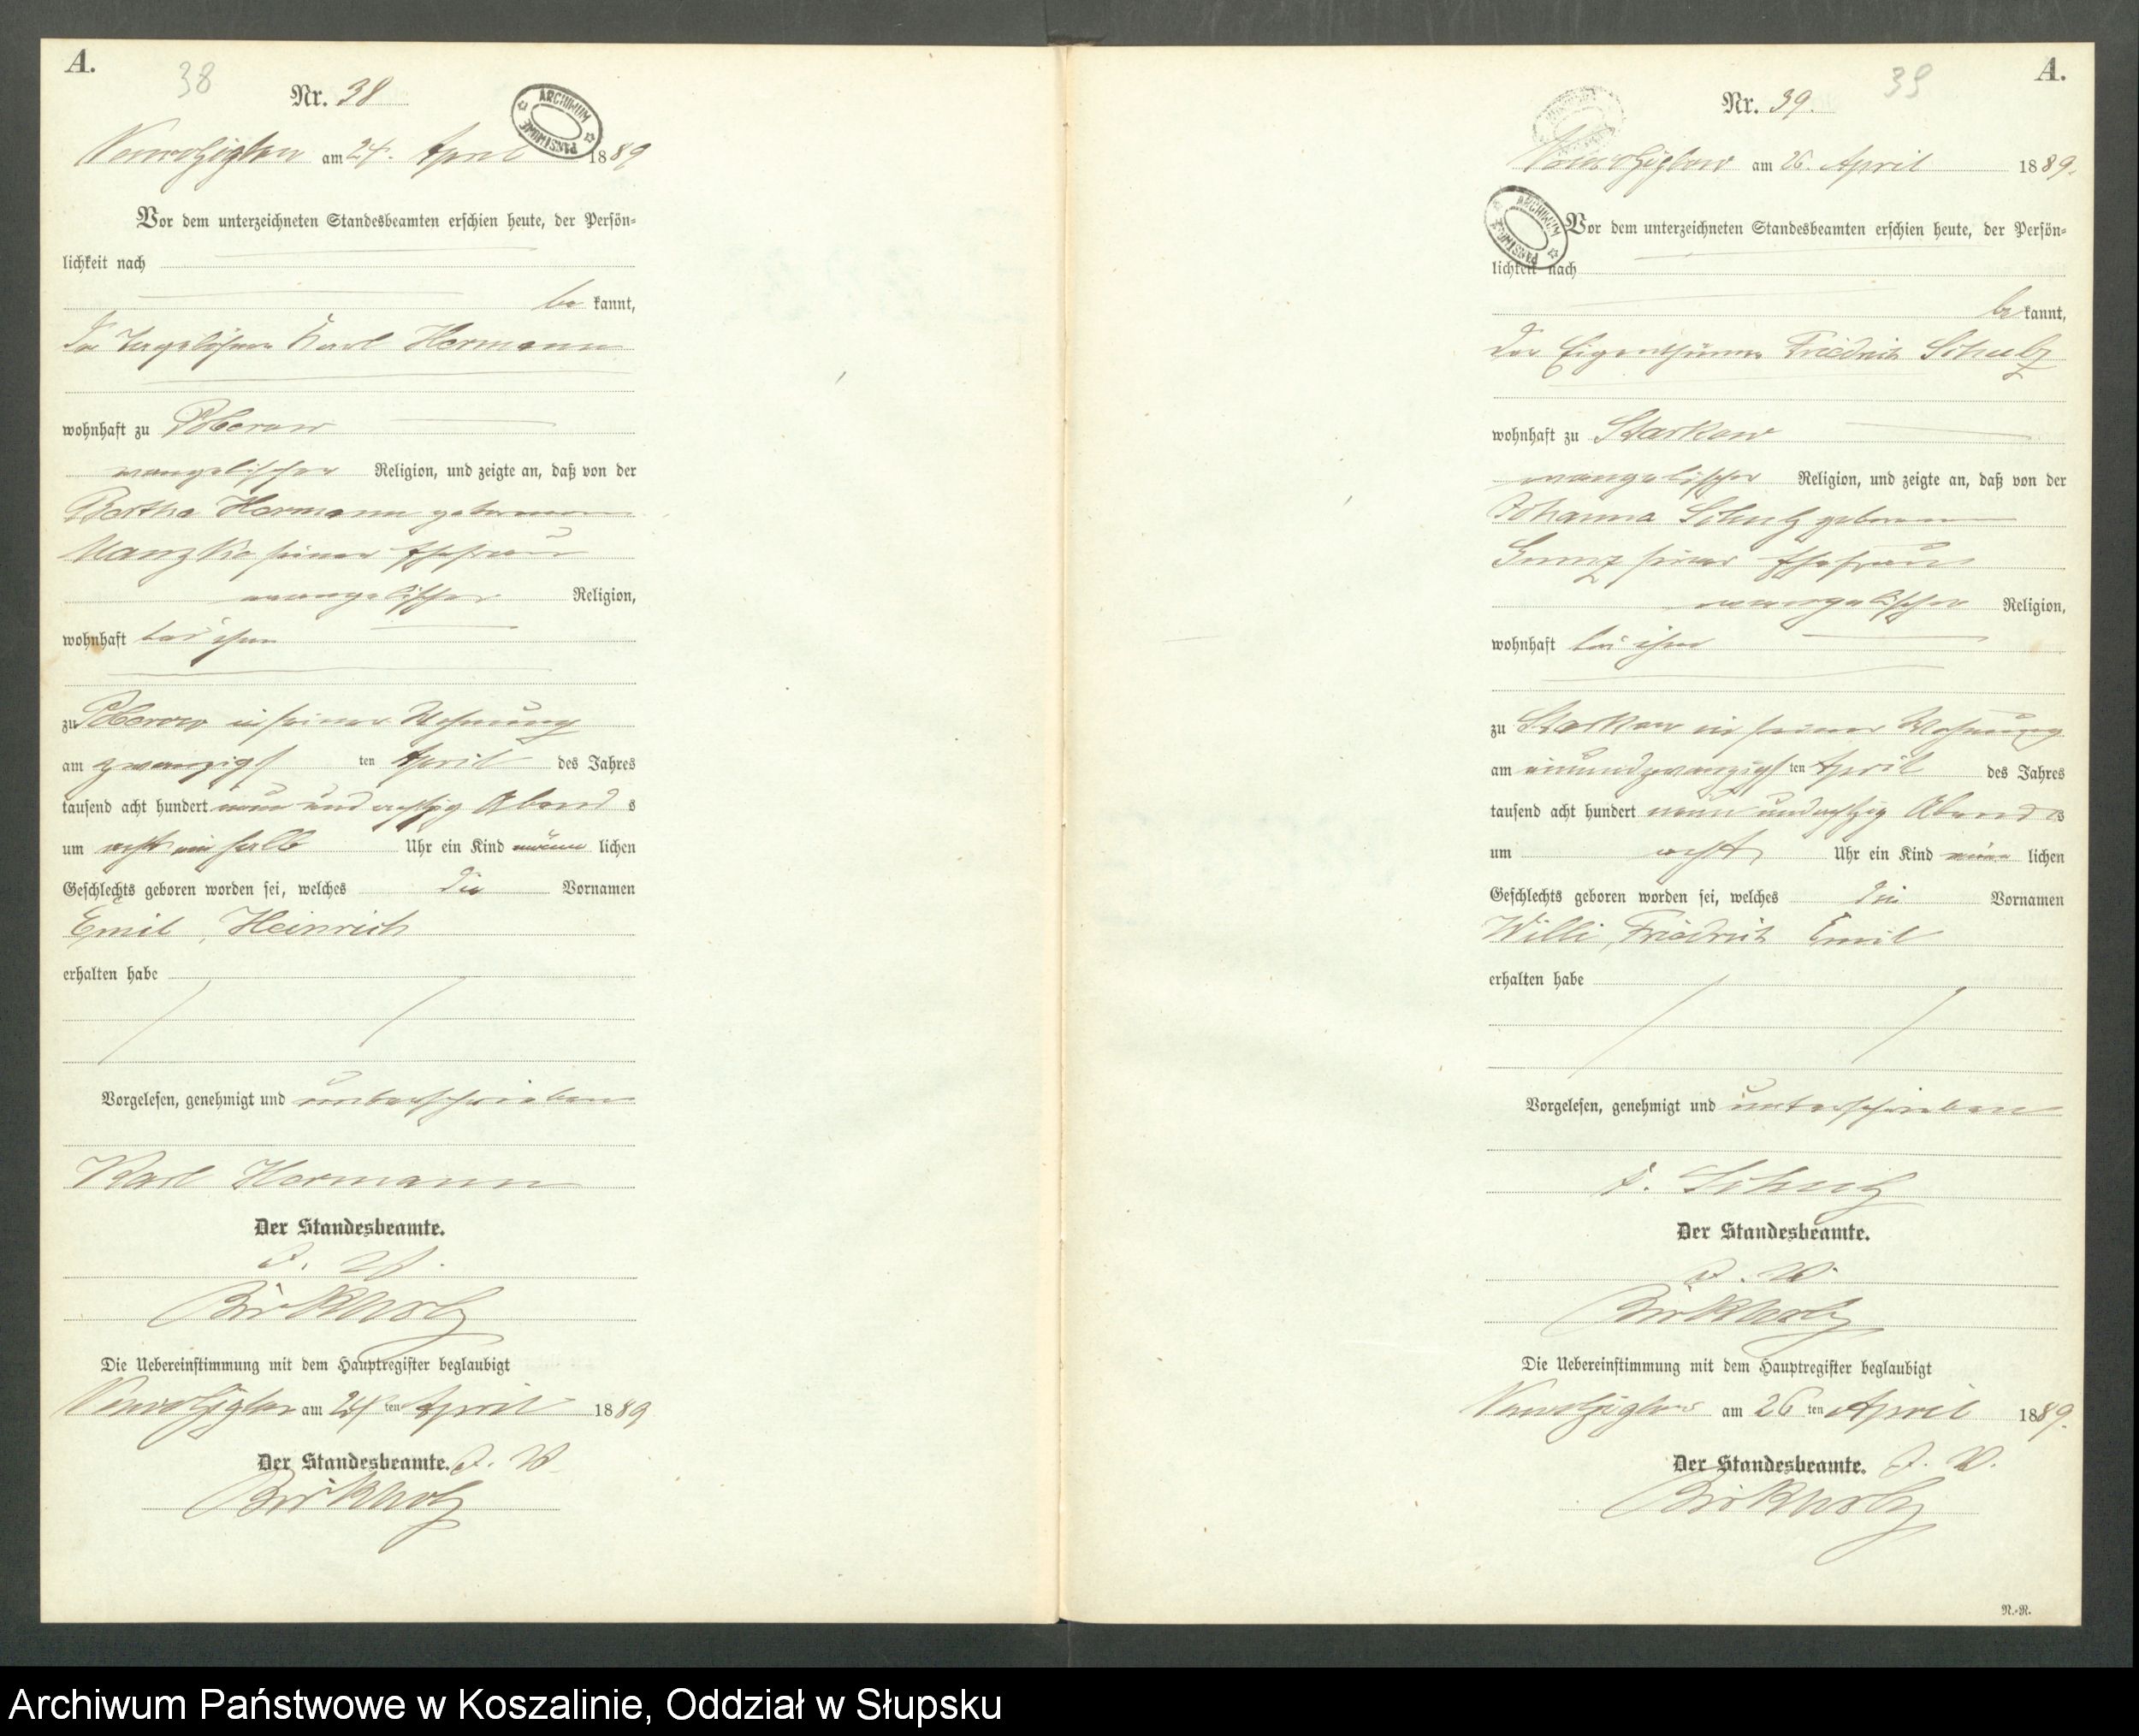 A.
38
Nr. 38
ARCHIWUM PAŃSTWOWE
am 24. April 1889
Vor dem unterzeichneten Standesbeamten erschien heute, der Persön-
lichkeit nach
be kannt,
der Tagelöhner Karl Hermann
wohnhaft zu Poberow
evangelischer Religion, und zeigte an, daß von der
Bertha Hermann geborenen
Manzke seiner Ehefrau
evangelischer Religion,
wohnhaft bei ihm
zu Poberow in seiner Wohnung
am zwanzigsten April des Jahres
tausend acht hundert neun und achtzig Abends
um acht ein halb Uhr ein Kind männlichen
Geschlechts geboren worden sei, welches die Vornamen
Emil, Heinrich
erhalten habe
Vorgelesen, genehmigt und unterschrieben
Karl Hermann
Der Standesbeamte.
J. V.
Birkholz
Die Uebereinstimmung mit dem Hauptregister beglaubigt
am 24 ten April 1889
Der Standesbeamte. J. V.
Birkholz
A.
39
Nr. 39.
ARCHIWUM PAŃSTWOWE
am 26. April 1889.
Vor dem unterzeichneten Standesbeamten erschien heute, der Persön-
lichkeit nach
be kannt,
der Eigenthümer Friedrich Schulz
wohnhaft zu Starkow
evangelischer Religion, und zeigte an, daß von der
Johanna Schulz geborenen
seiner Ehefrau
evangelischer Religion,
wohnhaft bei ihm
zu Starkow in seiner Wohnung
am einundzwanzigsten April des Jahres
tausend acht hundert neun und achtzig Abends
um acht Uhr ein Kind männlichen
Geschlechts geboren worden sei, welches die Vornamen
Willi, Friedrich Emil
erhalten habe
Vorgelesen, genehmigt und unterschrieben
F. Schulz
Der Standesbeamte.
J. V.
Birkholz
Die Uebereinstimmung mit dem Hauptregister beglaubigt
am 26 ten April 1889.
Der Standesbeamte. J. V.
Birkholz
N.-R.
Archiwum Państwowe w Koszalinie, Oddział w Słupsku